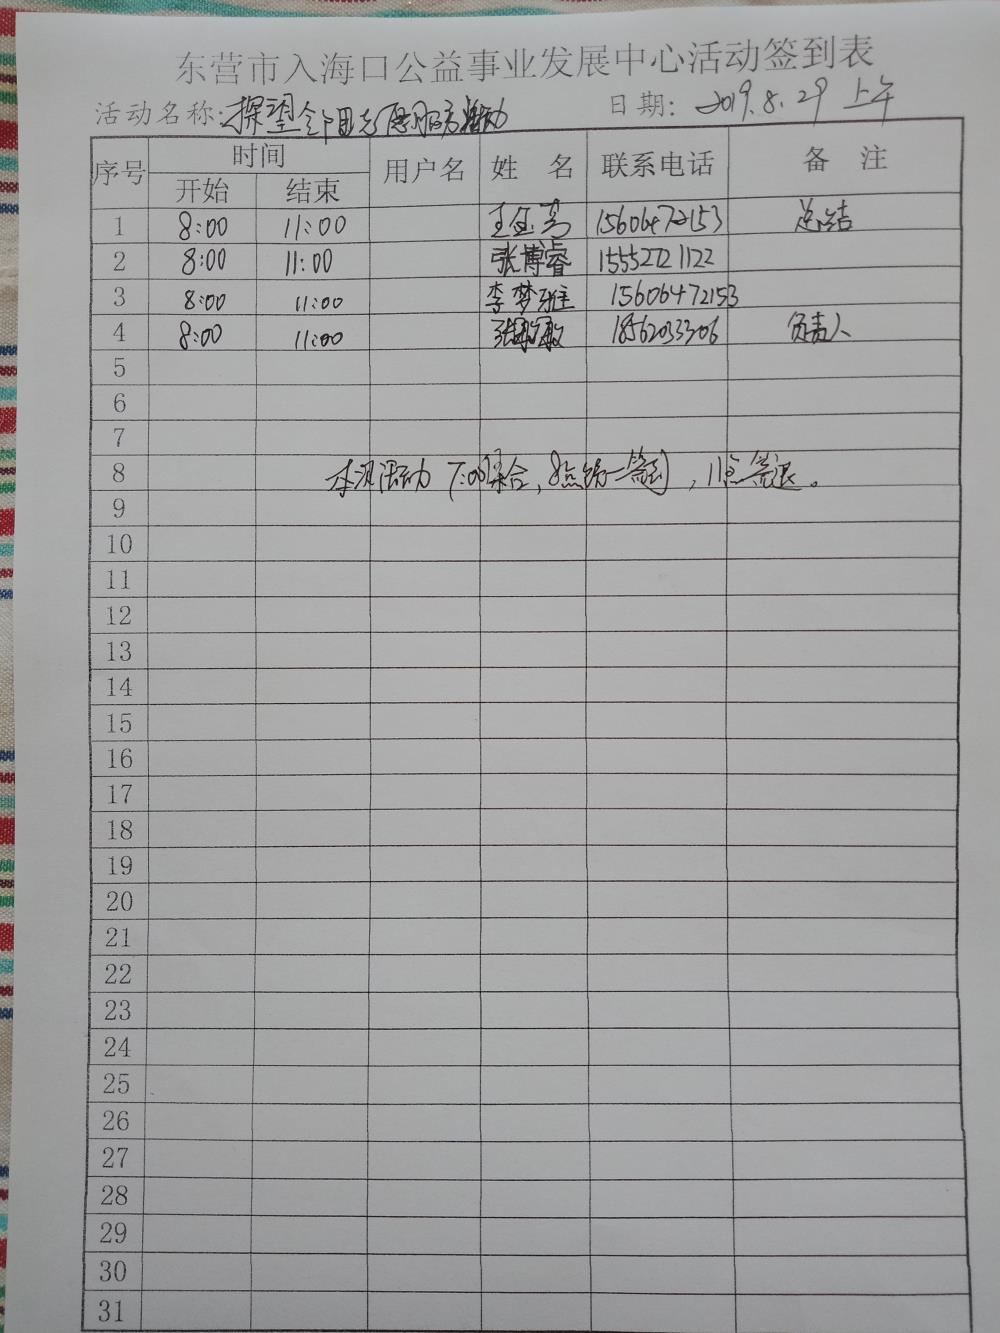 东营市入海口公益事业发展中心活动签到表
活动名称:探望 服务活动 日期: 2019.8.29 上午
序号 时间 用户名 姓 名 联系电话 备 注
开始 结束
1 8:00 11:00 王 15606472153 总结
2 8:00 11:00 张博睿 15552721122
3 8:00 11:00 李梦雅 15606472153
4 8:00 11:00 张 敏 18562033306 负责人
5
6
7
8 本次活动 7:00集合,8点统一签到,11点签退。
9
10
11
12
13
14
15
16
17
18
19
20
21
22
23
24
25
26
27
28
29
30
31